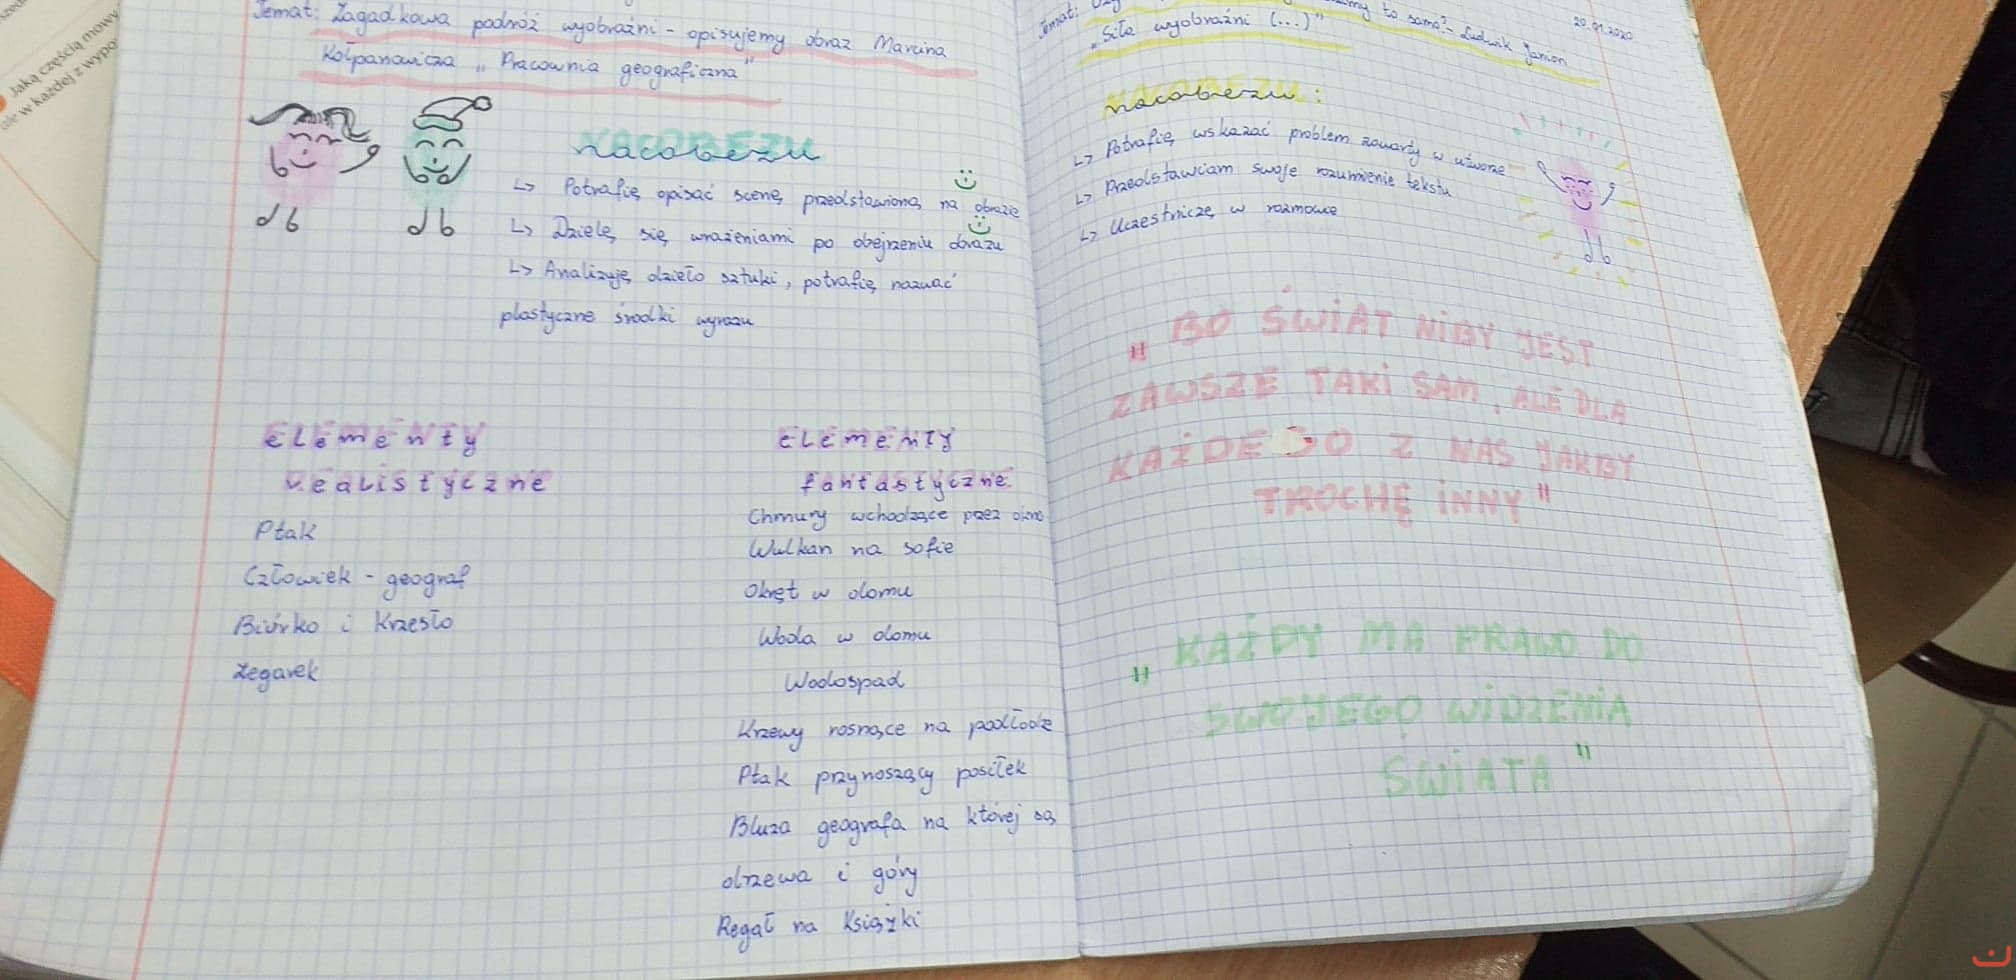 jaką częścią mowy
w każdej z wypo
Temat: Zagadkowa podróż wyobraźni - opisujemy obraz Marcina
Kołpanowicza „Pracownia geograficzna"
nacobezu
↳ Potrafię opisać scenę przedstawioną na obrazie
↳ Dzielę się wrażeniami po obejrzeniu obrazu
↳ Analizuję dzieło sztuki, potrafię nazwać
plastyczne środki wyrazu
Elementy
realistyczne
Ptak
Człowiek - geograf
Biórko i Krzesło
Zegarek
Elementy
fantastyczne
Chmury wchodzące przez okno
Wulkan na sofie
Okręt w domu
Woda w domu
Wodospad
Krzewy rosnące na podłodze
Ptak przynoszący posiłek
Bluza geografa na której są
drzewa i góry
Regał na Książki
20.01.2020
Temat: to samo? - Ludwik Janion
„Siła wyobraźni (...)"
nacobezu:
↳ Potrafię wskazać problem zawarty w utworze
↳ Przedstawiam swoje rozumienie tekstu
↳ Uczestniczę w rozmowce
„BO ŚWIAT NIBY JEST
ZAWSZE TAKI SAM, ALE DLA
KAŻDEGO Z NAS JAKBY
TROCHĘ INNY"
„KAŻDY MA PRAWO DO
SWOJEGO WIDZENIA
ŚWIATA"